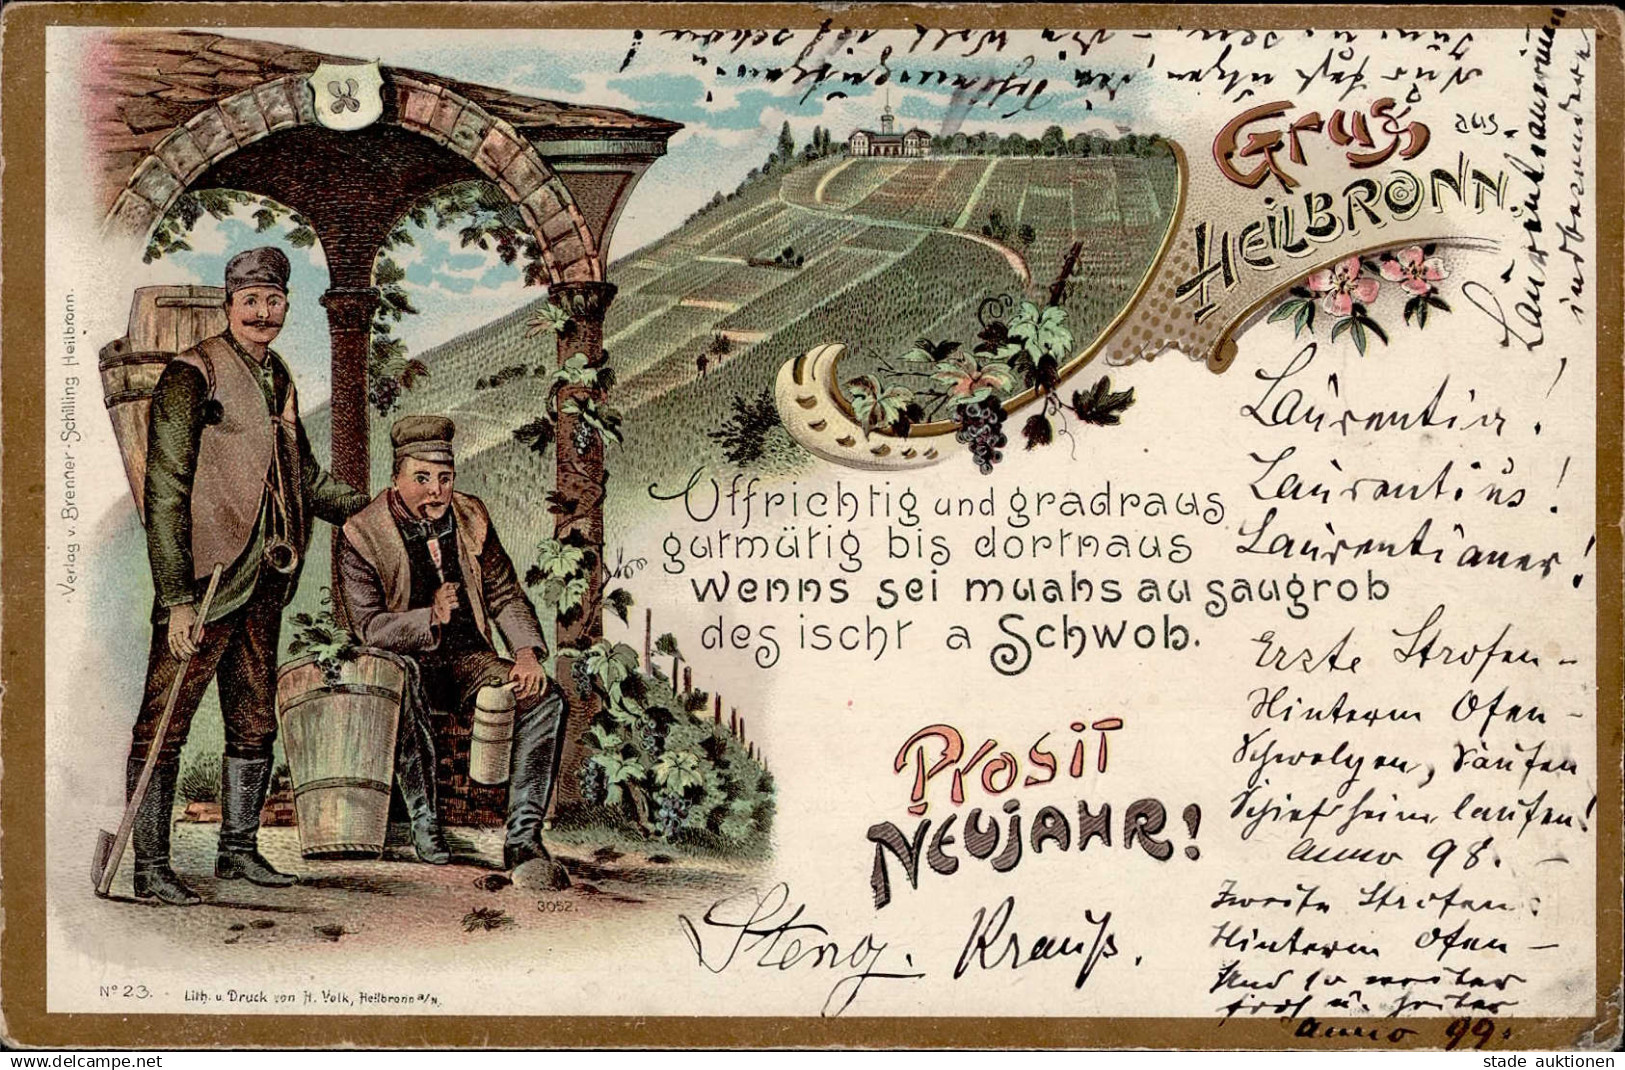 Gruß aus
HEILBRONN
Uffrichtig und gradraus
gutmütig bis dortnaus
wenns sei muahs au saugrob
des ischt a Schwob.
Prosit
NEUJAHR!
Steng. Krauß.
Laurentia!
Laurentius!
Laurentianer!
Erste Strofen –
Hinterm Ofen –
Schwelgen, Saufen
Schief heim laufen!
Anno 98. –
Zweite Strofen:
Hinterm Ofen –
Und so weiter
froh u. heiter
Anno 99.
insbesondere
Verlag v. Brenner-Schilling Heilbronn.
3052.
Nº 23. - Lith. u. Druck von H. Volk, Heilbronn a/N.
stade auktionen